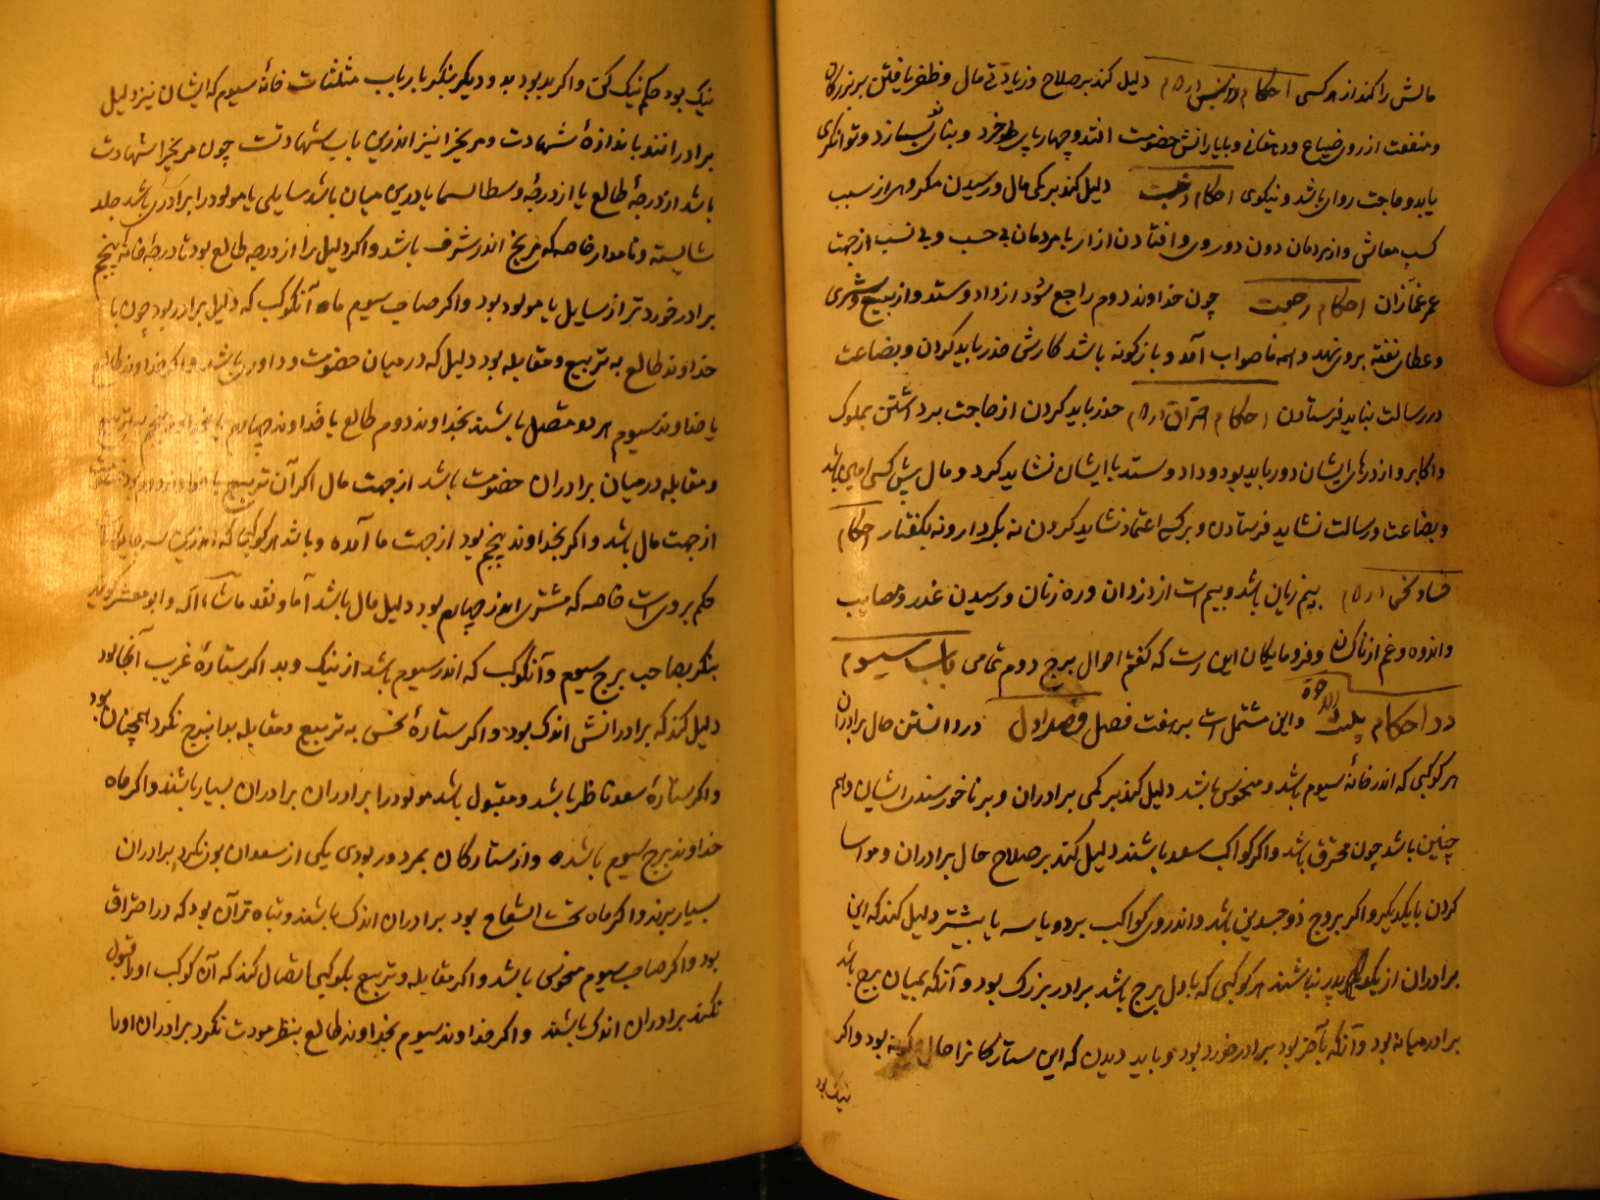 مالش را کند از هر کسی احکام دلیل کند بر صلاح و زیادتی مال و ظفر یافتن بر بزرگان
و منفعت از روی ضیاع و دهقانی و با یارانش خصومت افتد و چهارپای خرد و بنای بسازد و توانکری
یابد و حاجت روا باشد و نیکوی احکام دلیل کند بر کمی مال و رسیدن مکروهی از سبب
کسب معاش و از مردمان دون دوروی و افتادن ازار با مردمان بی حسب و بی نسب از جهت
غمازان احکام رجعت چون خداوند دوم راجع شود از داد و ستد و از بیع و شری
و عطای نفقه بروی نهد و همه ناصواب آمد و بازکونه باشد کارش حذر باید کردن و بضاعت
در رسالت نباید فرستادن احکام احتراق حذر باید کردن از حاجت برداشتن بملوک
و اکابر و از درهای ایشان دور باید بود و داد و ستد با ایشان نشاید کرد و مال پیش کسی
و بضاعت و رسالت نشاید فرستادن و بر کسی اعتماد نشاید کردن نه بکردار و نه بکفتار احکام
بیم زیان باشد و بیم است از دزدان و ره زنان و رسیدن غدر و مصایب
و اندوه و غم از ناکسان و فرومایکان این است که کفتم احوال برج دوم تمامی باب سیوم
در احکام و این مشتمل است بر هفت فصل فصل اول در دانستن حال برادران
هر کوکبی که اندر خانهٔ سیوم باشد و منحوس باشد دلیل کند بر کمی برادران و بر ناخورسندی ایشان و هم
چنین باشد چون محترق باشد و اکر کواکب سعد باشند دلیل کند بر صلاح حال برادران و مواسا
کردن با یکدیکر و اکر بروج ذو جسدین باشد و اندروی کواکب بر دو یا سه یا بیشتر دلیل کند که این
برادران از یک پدر نباشند هر کوکبی که باول برج باشد برادر بزرک بود و آنکه بمیان برج باشد
برادر میانه بود و آنکه بآخر بود برادر خورد بود و باید دیدن که این ستارکانرا حال چکونه بود و اکر
نیک بود
نیک بود حکم نیک کن و اکر بد بود بد و دیکر بنکر بارباب مثلثات خانهٔ سیوم که ایشان نیز دلیل
برادرانند باندازهٔ شهادت و مریخرا نیز اندرین باب شهادتست چون مریخرا شهادت
باشد از درجهٔ طالع یا از درجهٔ وسط السما یا بدین میان باشد سایلی یا مولود را برادری باشد جلد
شایسته و نامدار خاصه که مریخ اندر شرف باشد و اکر دلیل را از درجه طالع بود تا درجهٔ خانهٔ پنجم
برادر خوردتر از سایل یا مولود بود و اکر صاحب سیوم ماه آنکوکب که دلیل برادر بود چون با
خداوند طالع به تربیع و مقابله بود دلیل که در میان خصومت و داوری باشد و اکر خداوند طالع
یا خداوند سیوم هر دو متصل باشند بخداوند دوم طالع یا خداوند چهارم
و مقابله در میان برادران خصومت باشد از جهت مال اکر آن تربیع با خداوند دوم بود
از جهت مال باشد و اکر بخداوند پنجم بود از جهت ما آمده و باشد هر کوکبی که اندرین سه خانه باشد
حکم بروی است خاصه که مشتری اندر چهارم بود دلیل مال باشد اما و نقد ماشاء الله و ابو معشر کوید
بنکر بصاحب برج سیوم و آنکوکب که اندر سیوم باشد از نیک و بد اکر ستارهٔ غریب آنجا بود
دلیل کند که برادرانش اندک بود و اکر ستارهٔ نحس به تربیع و مقابله بدان برج نکرد همچنان بود
و اکر ستارهٔ سعد ناظر باشد و مقبول باشد مولود را برادران برادران بسیار باشند و اکر ماه
خداوند برج سیوم باشد و از ستارکان بمردور بودی یکی از سعدان بوزنکرد برادران
بسیار برند و اکر ماه تحت الشعاع بود برادران اندک باشند و تباه تر آن بود که در احتراق
بود و اکر صاحب سیوم منحوس باشد و اکر مقابله و تربیع بکوکبی اتصال کند که آن کوکب او را قبول
نکند برادران اندک باشند و اکر خداوند سیوم بخداوند طالع بنظر مودت نکرد برادران او را